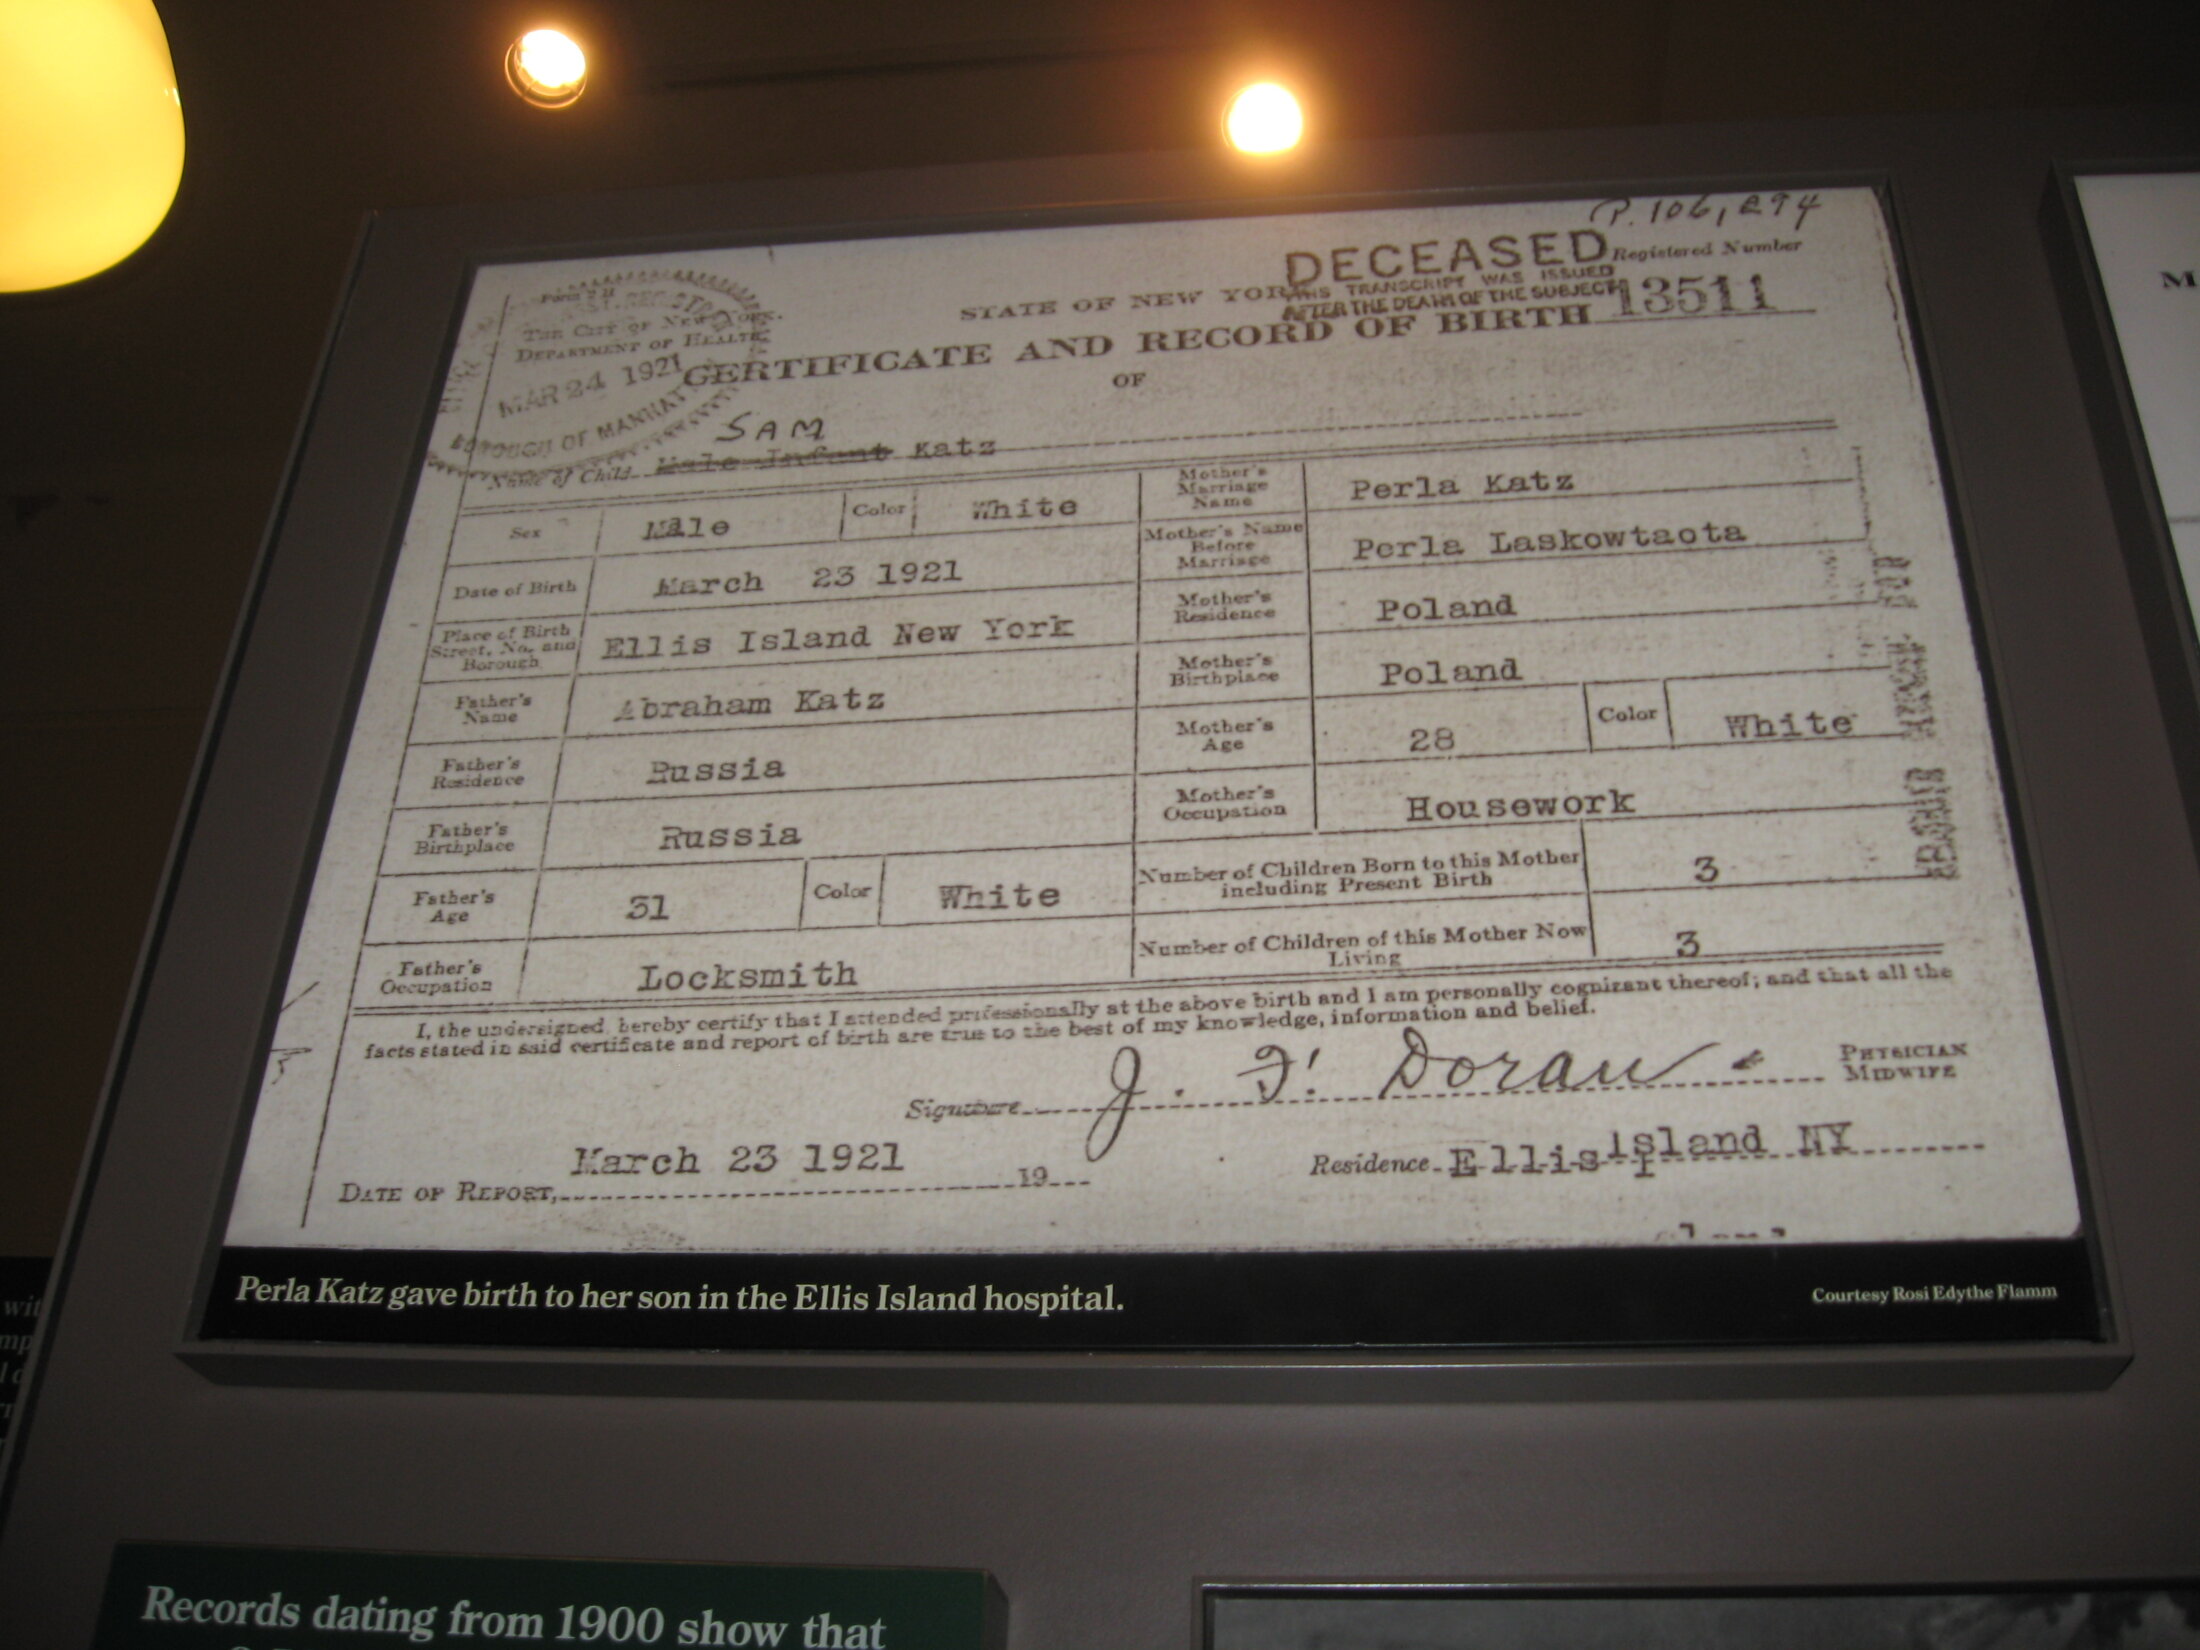 P. 106,294
DECEASED
Registered Number
THIS TRANSCRIPT WAS ISSUED
AFTER THE DEATH OF THE SUBJECT
13511
THE CITY OF NEW YORK.
DEPARTMENT OF HEALTH
MAR 24 1921
BOROUGH OF MANHAT
STATE OF NEW YORK
CERTIFICATE AND RECORD OF BIRTH
OF
SAM
Name of Child Male Infant Katz
Sex Male Color White
Date of Birth March 23 1921
Place of Birth
Street, No. and
Borough
Ellis Island New York
Father's
Name
Abraham Katz
Father's
Residence
Russia
Father's
Birthplace
Russia
Father's
Age
31 Color White
Father's
Occupation
Locksmith
Mother's
Marriage
Name
Perla Katz
Mother's Name
Before
Marriage
Perla Laskowtaota
Mother's
Residence
Poland
Mother's
Birthplace
Poland
Mother's
Age
28 Color White
Mother's
Occupation
Housework
Number of Children Born to this Mother
including Present Birth
3
Number of Children of this Mother Now
Living
3
I, the undersigned, hereby certify that I attended professionally at the above birth and I am personally cognizant thereof; and that all the
facts stated in said certificate and report of birth are true to the best of my knowledge, information and belief.
Signature J. F. Doran PHYSICIAN
MIDWIFE
March 23 1921
DATE OF REPORT, 19
Residence Ellis Island NY
Perla Katz gave birth to her son in the Ellis Island hospital.
Courtesy Rosi Edythe Flamm
Records dating from 1900 show that